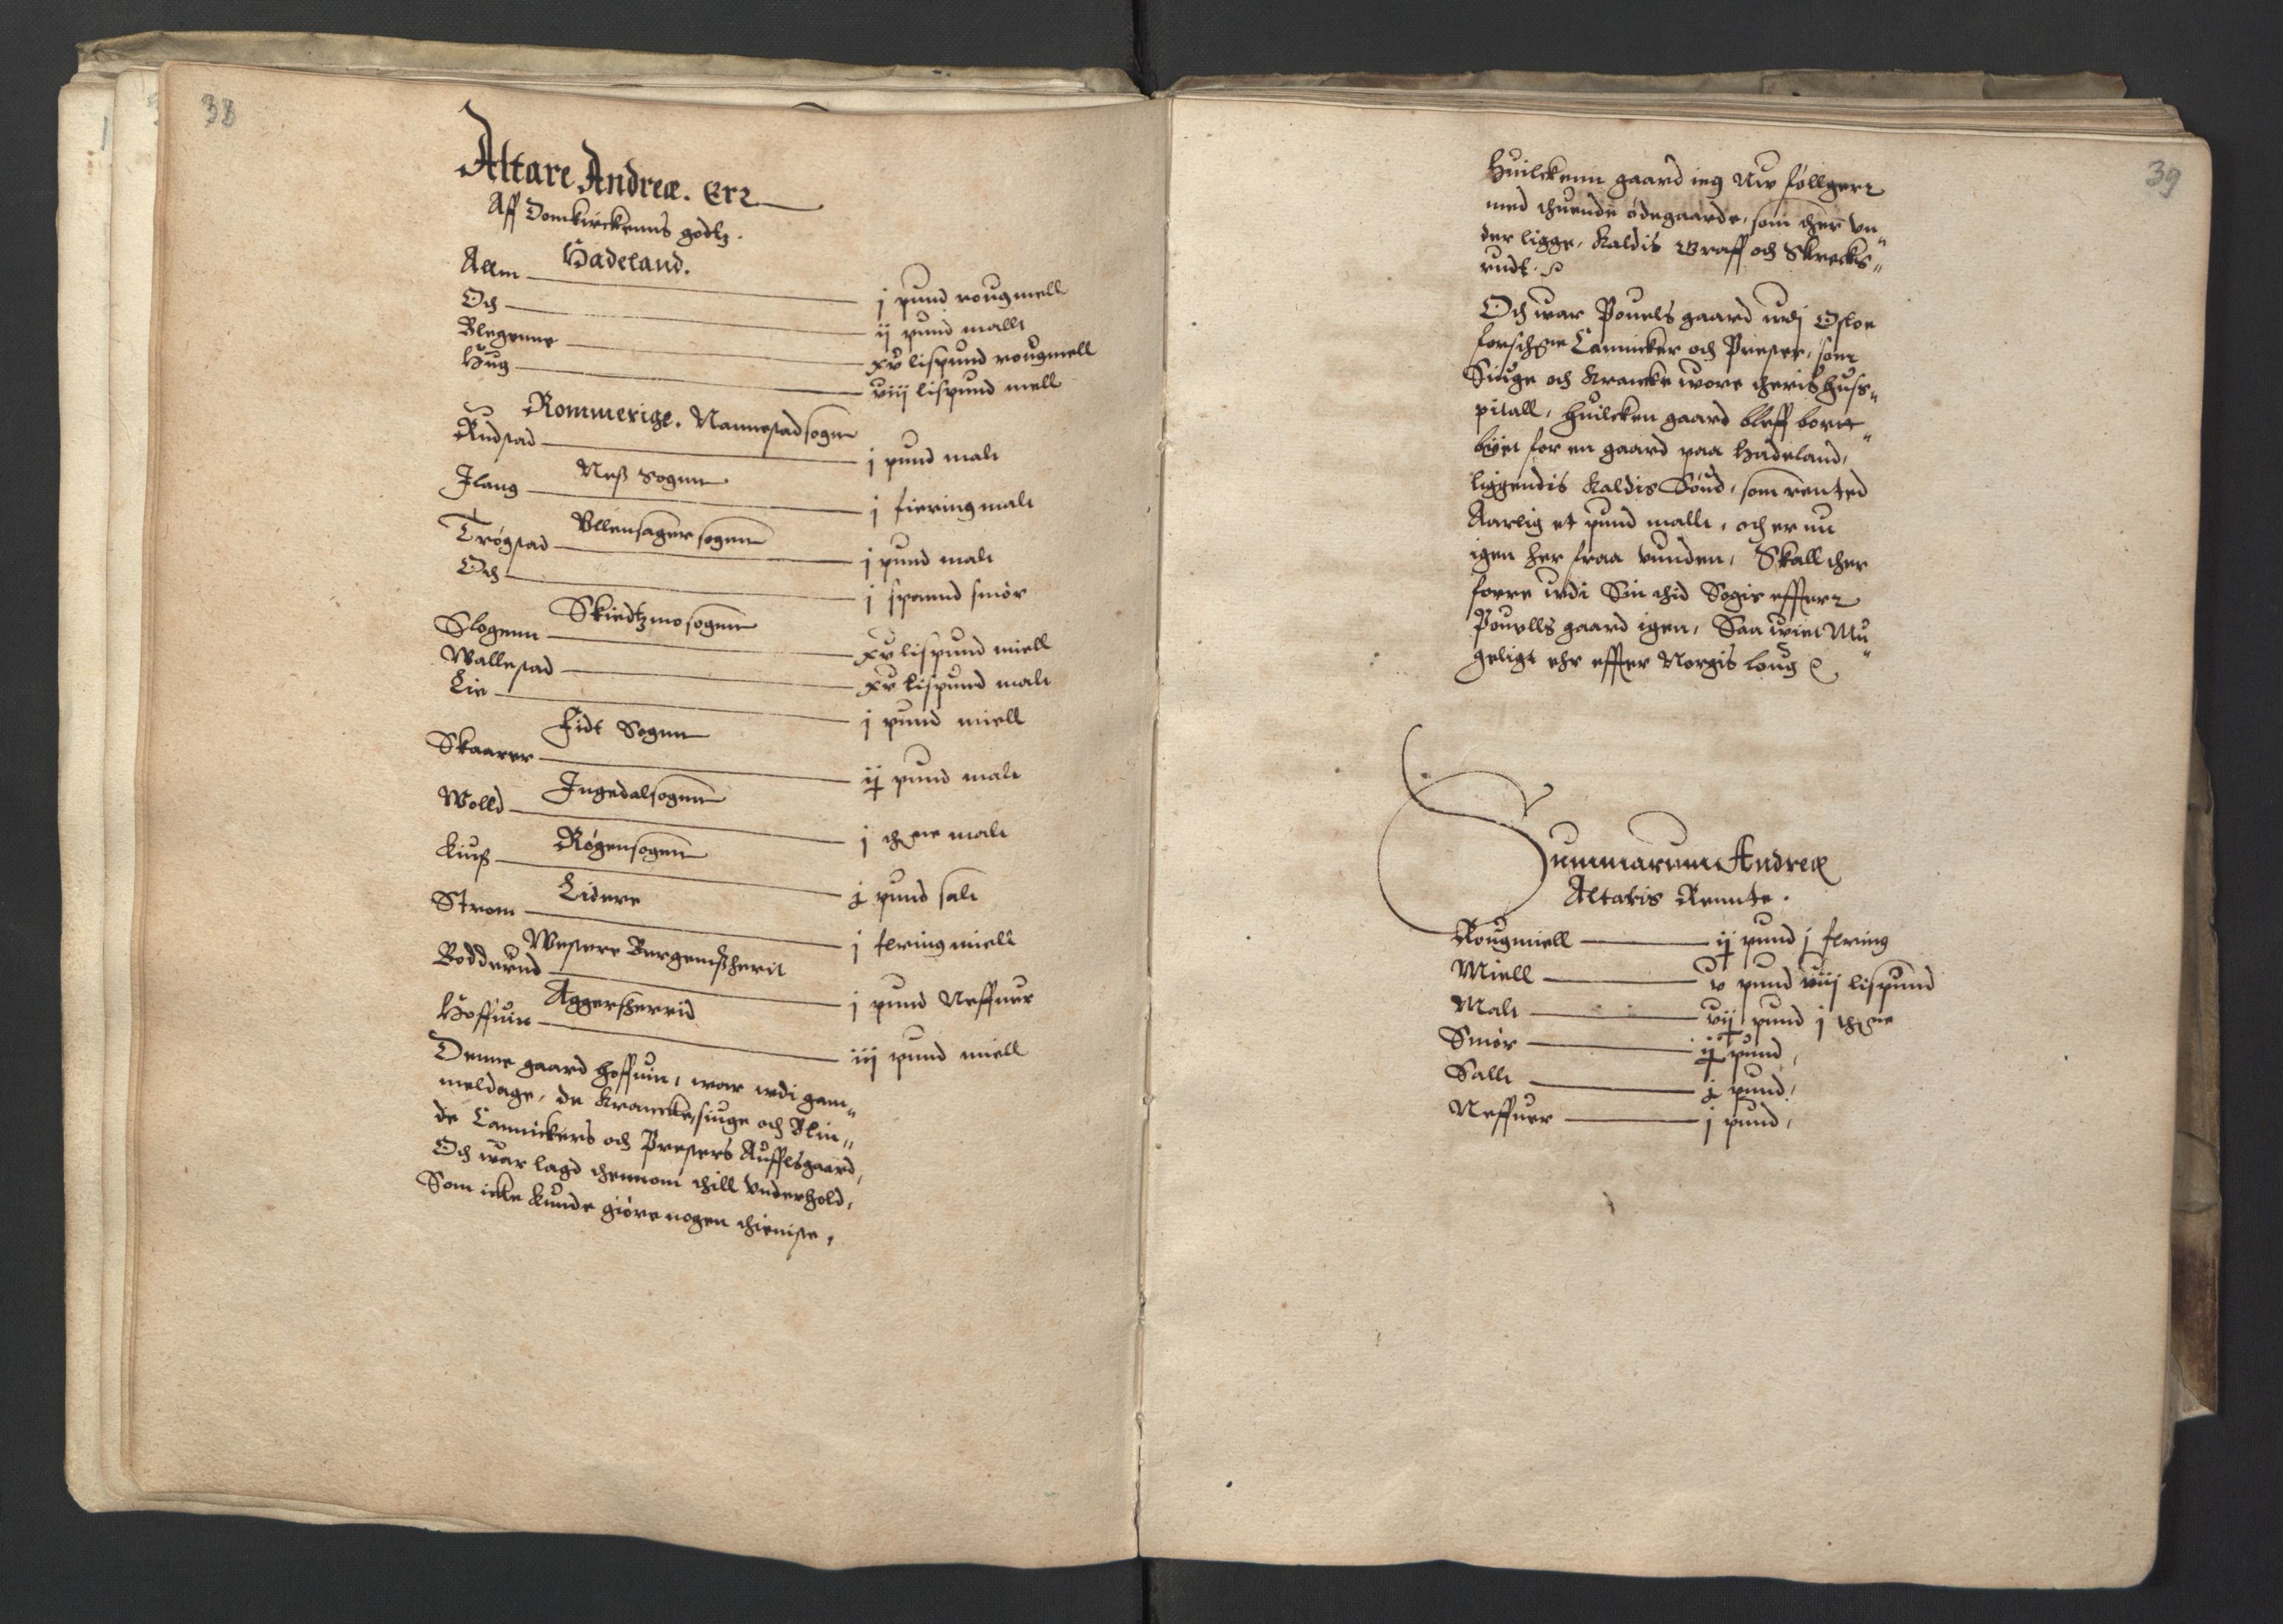 38
Altare Andreæ. Er2
Aff Domkirckenns godtz.
Hadeland.
Allm j pund rougmell
Och ij pund mallt
Blegenne xv lispund rougmell
Hug viij lispund mell
Rommerige. Nannestad sogn
Rudstad j pund malt
Neß Sognn
Ilang j fiering malt
Ullensager sognn
Trøgstad j pund malt
Och j spannd smør
Skiedtzmo sognn
Slogenn xv lispund miell
Wallestad xv lispund malt
Lie j pund miell
Fidt Sognn
Skaarer ij pund malt
Ingedal sognn
Wolld j malt
Røgen sognn
Kiuß j pund salt
Lidere
Strom j fering miell
Westere Bergemßherit
Bodderud j pund Neffuer
Aggersherrid
Hoffuin iij pund miell
Denne gaard hoffuin, war udi gam„
meldage, de Kranncke, siuge och Blin„
de Cannickers och Presters Aufflsgaard,
Och war lagd thennom thill Underhold,
Som icke kunde giøre nogen thieniste,
39
Huilckenn gaard ieg Nu føllger2
med thuende ødegaarde, som ther Un„
der ligge, Kaldis Graff och Skrecks„
rudt.
Och war Pouels gaard udj Osloe
forschne Cannicker och Prester, som
Siuge och Krancke wore theris huss„
pitall, huilcken gaard bleff bortt„
bÿtt for en gaard paa Hadeland,
liggendis Kaldis Sønd, som rented
Aarlig et pund mallt, och er nu
igen her fraa vunden, Skall ther
forre udi Sin thid Søgis effter2
Pouells gaard igen, Saa wiet Mu„
geligt ehr effter Norgis loug
Summarum Andreæ
Altaris Rennte.
Rougmiell ij pund j fering
Miell v pund viij lispund
Malt vij pund j
Smør ij pund,
Sallt j pund,
Neffuer j pund,